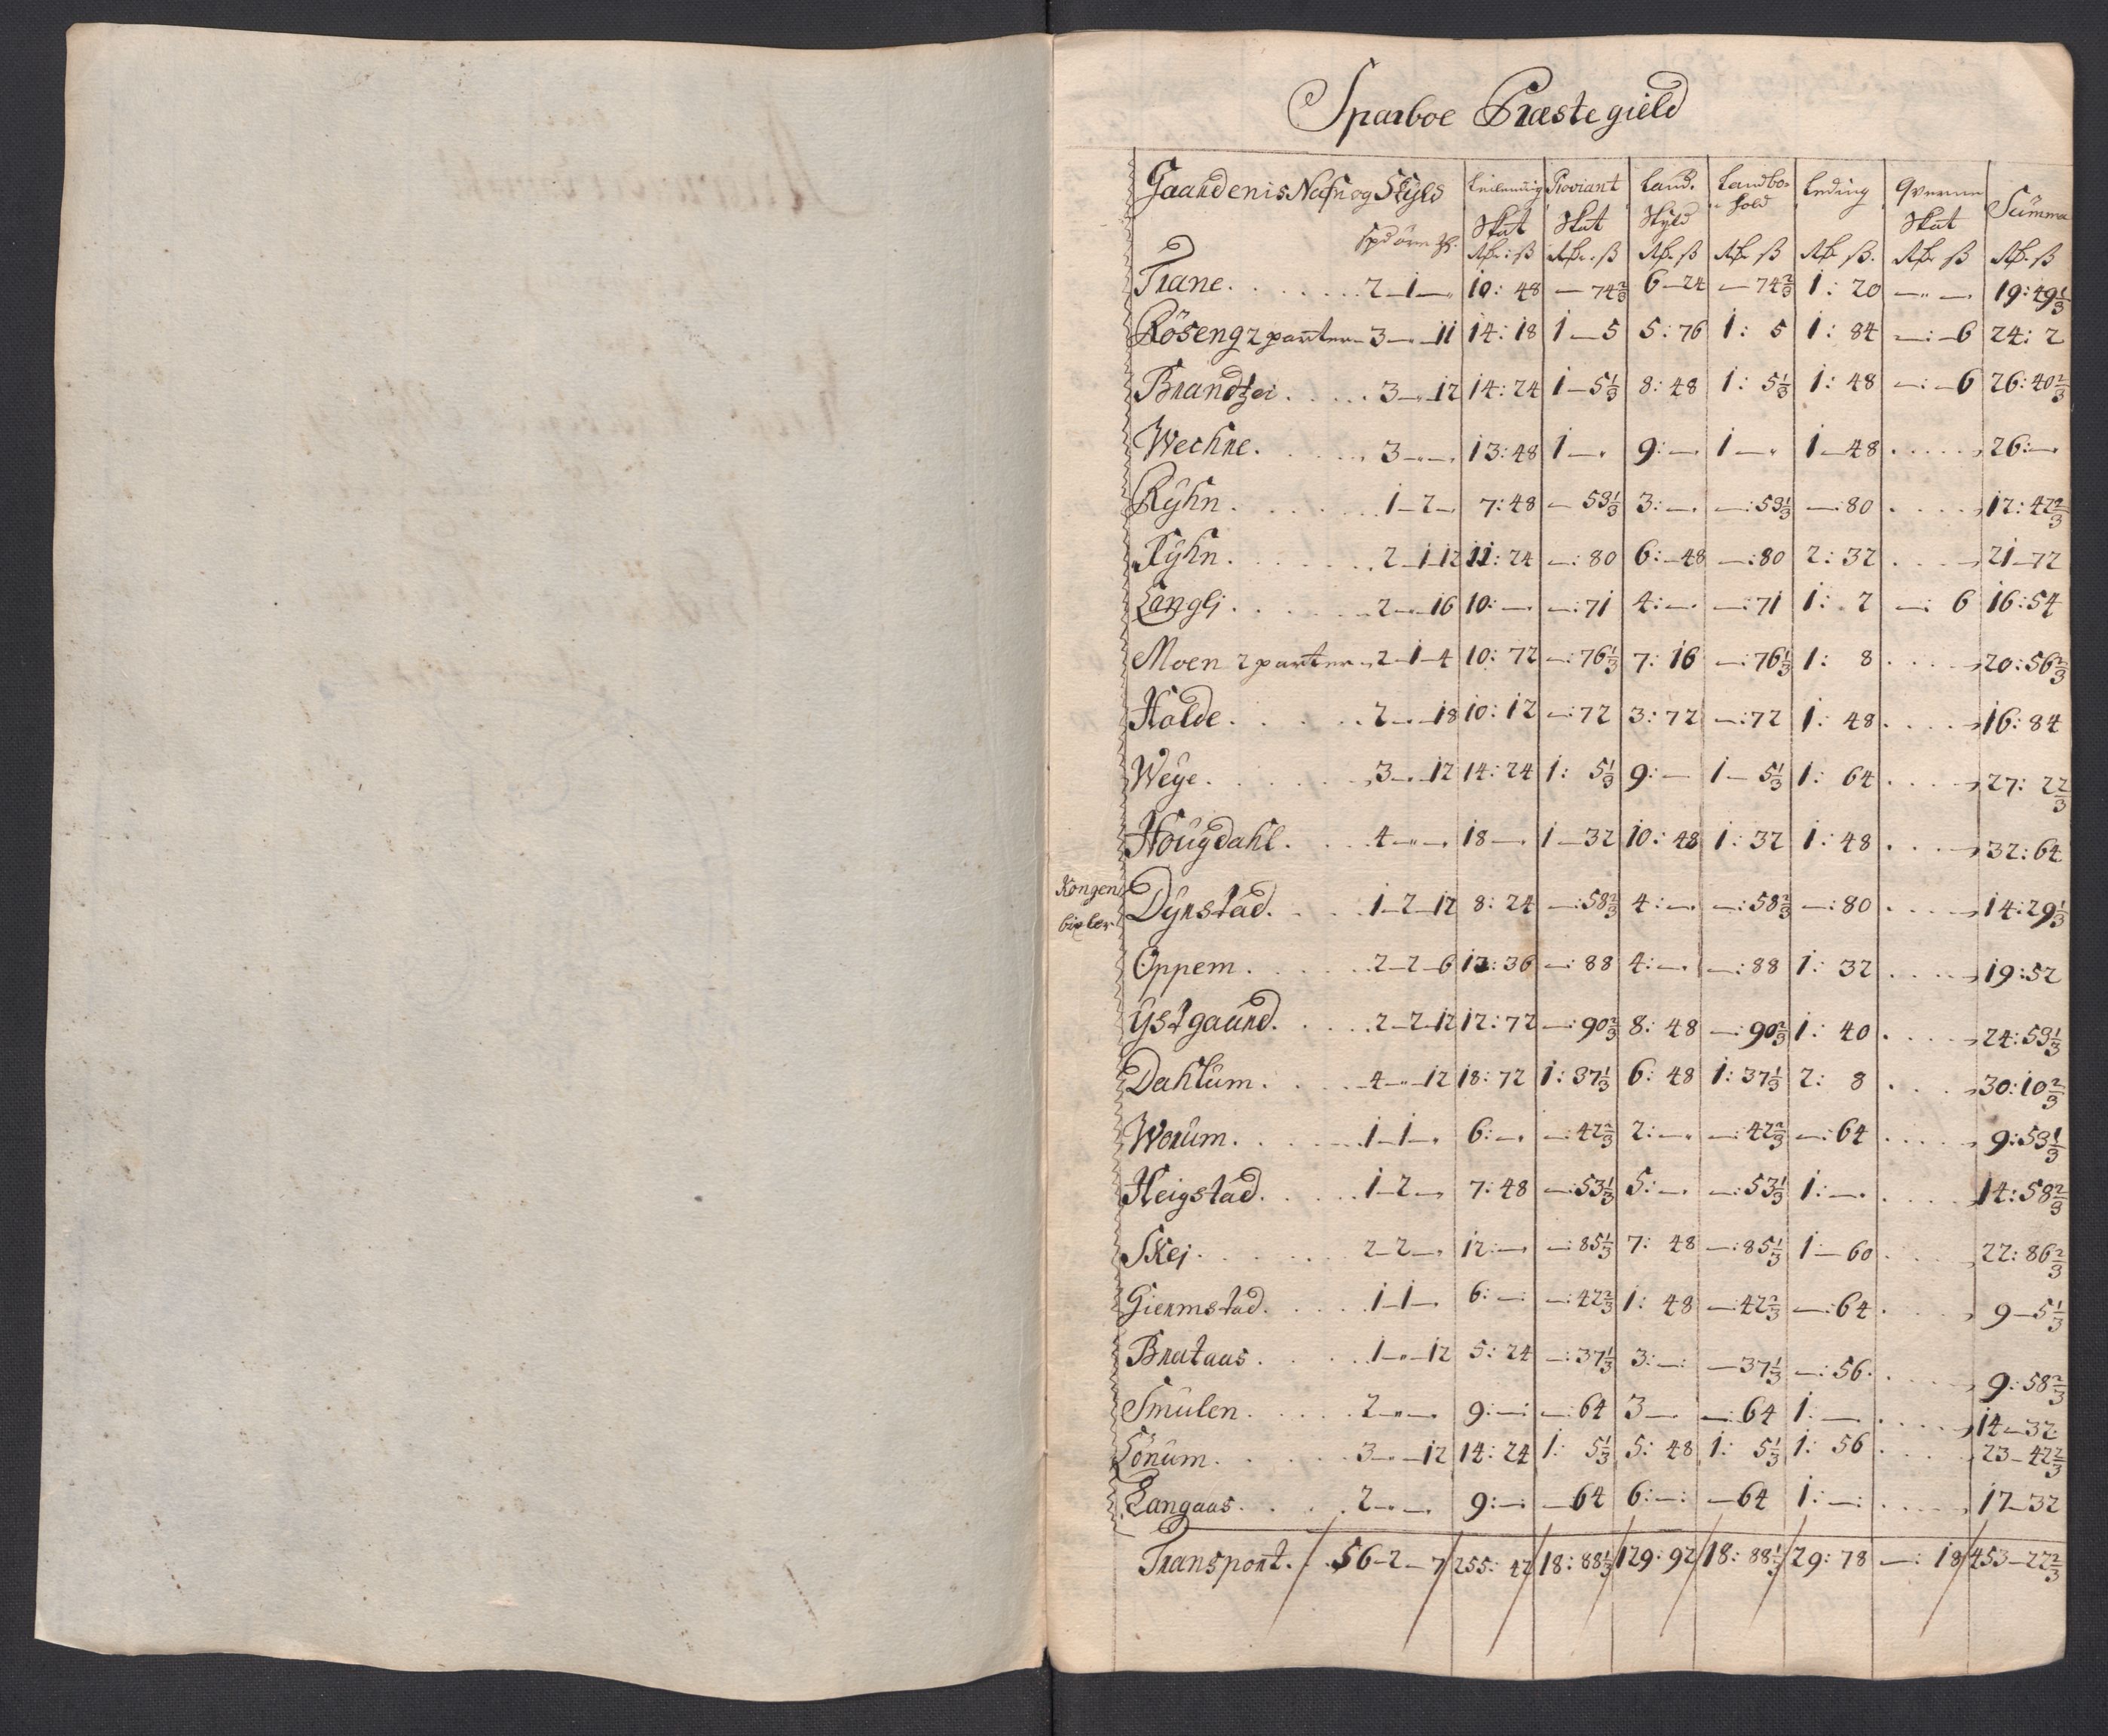 Sparboe Præstegield
Gaardenis Nafn og Skÿld Leilending Skat Proviant Skat Land Skÿld Landbohold Leding Qverne Skat Summa
Spd øre Rdr: ß Rdr: ß Rdr: ß Rdr ß Rdr ß Rdr ß Rdr: ß
Trane . . . . . . 2–1–" 10: 48 – 74 2/3 6–24 – 74 2/3 1: 20 –"– 19: 49 1/3
Röseng 2 parter 3–"–11 14: 18 1–5 5: 76 1: 5 1: 84 –:–6 24: 2
Brandtzei . . . . . 3–"–12 14: 24 1–5 1/3 8: 48 1: 5 1/3 1: 48 –:–6 26: 40 2/3
Wechre . . . . . 3–"–" 13: 48 1–" 9:–" 1–" 1–48 . . . . 26:–"
Rÿhn . . . . . . 1–2–" 7: 48 – 53 1/3 3:–" –: 53 1/3 –: 80 . . . . 12: 42 2/3
Fÿhn . . . . . . 2–1–12 11: 24 –: 80 6:–48 –: 80 2: 32 . . . . 21–72
Langli . . . . . 2–"–16 10:–" –: 71 4:–" –: 71 1: 2 –: 6 16: 54
Moen 2 parter 2–1–4 10: 72 –: 76 1/3 7: 16 –: 76 1/3 1: 8 . . . . 20: 56 2/3
Holde . . . . . 2–"–18 10: 12 –: 72 3: 72 –: 72 1: 48 . . . . 16: 84
Weÿe . . . . . . 3–"–12 14: 24 1: 5 1/3 9:– 1– 5 1/3 1: 64 . . . . 27: 2 2/3
Hougdahl . . . . 4–"–" 18–" 1–32 10: 48 1: 32 1: 48 . . . . 32: 64
Kongen
Dÿrstad . . . . 1–2–12 8: 24 –: 58 2/3 4:–" –: 58 2/3 –: 80 . . . . 14: 29 1/3
Oppem . . . . . 2–2–6 12: 36 –: 88 4:–" –: 88 1: 32 . . . . 19: 52
Ÿstgaard . . . . 2–2–12 12: 72 –: 90 2/3 8: 48 –: 90 2/3 1: 40 . . . . 24: 53 1/3
Dahlum . . . . 4–"–12 18: 72 1: 37 1/3 6: 48 1: 37 1/3 2: 8 . . . . 30: 10 2/3
Worum . . . . . 1–1–" 6:–" –: 42 2/3 2:–" –: 42 2/3 –: 64 . . . . 9: 53 1/3
Heigstad . . . . 1–2–" 7: 48 –: 53 1/3 5:–" –: 53 1/3 1:–" . . . . 14: 58 2/3
Skej . . . . . . 2–2–" 12:–" –: 85 1/3 7: 48 –: 85 1/3 1–60 . . . . 22: 86 2/3
Giermstad . . . . 1–1–" 6:–: –: 42 2/3 1: 48 –: 42 2/3 –: 64 . . . . 9–5 1/3
Brataas . . . . 1–"–12 5: 24 –: 37 1/3 3:–: –37 1/3 –: 56 . . . . 9: 58 2/3
Smulen . . . . . 2–"–" 9:–: –: 64 3–" –: 64 1:–" . . . . 14–32
Lönum . . . . . 3–"–12 14: 24 1: 5 1/3 5: 48 1: 5 1/3 1: 56 . . . . 23–42 2/3
Langaas . . . . 2–"–" 9:–: –64 6:–: –64 1:–: . . . . 17–32
Transport . . 56–2–7 255: 42 18: 88 1/3 129: 92 18: 88 1/3 29: 78 –: 18 453–22 2/3